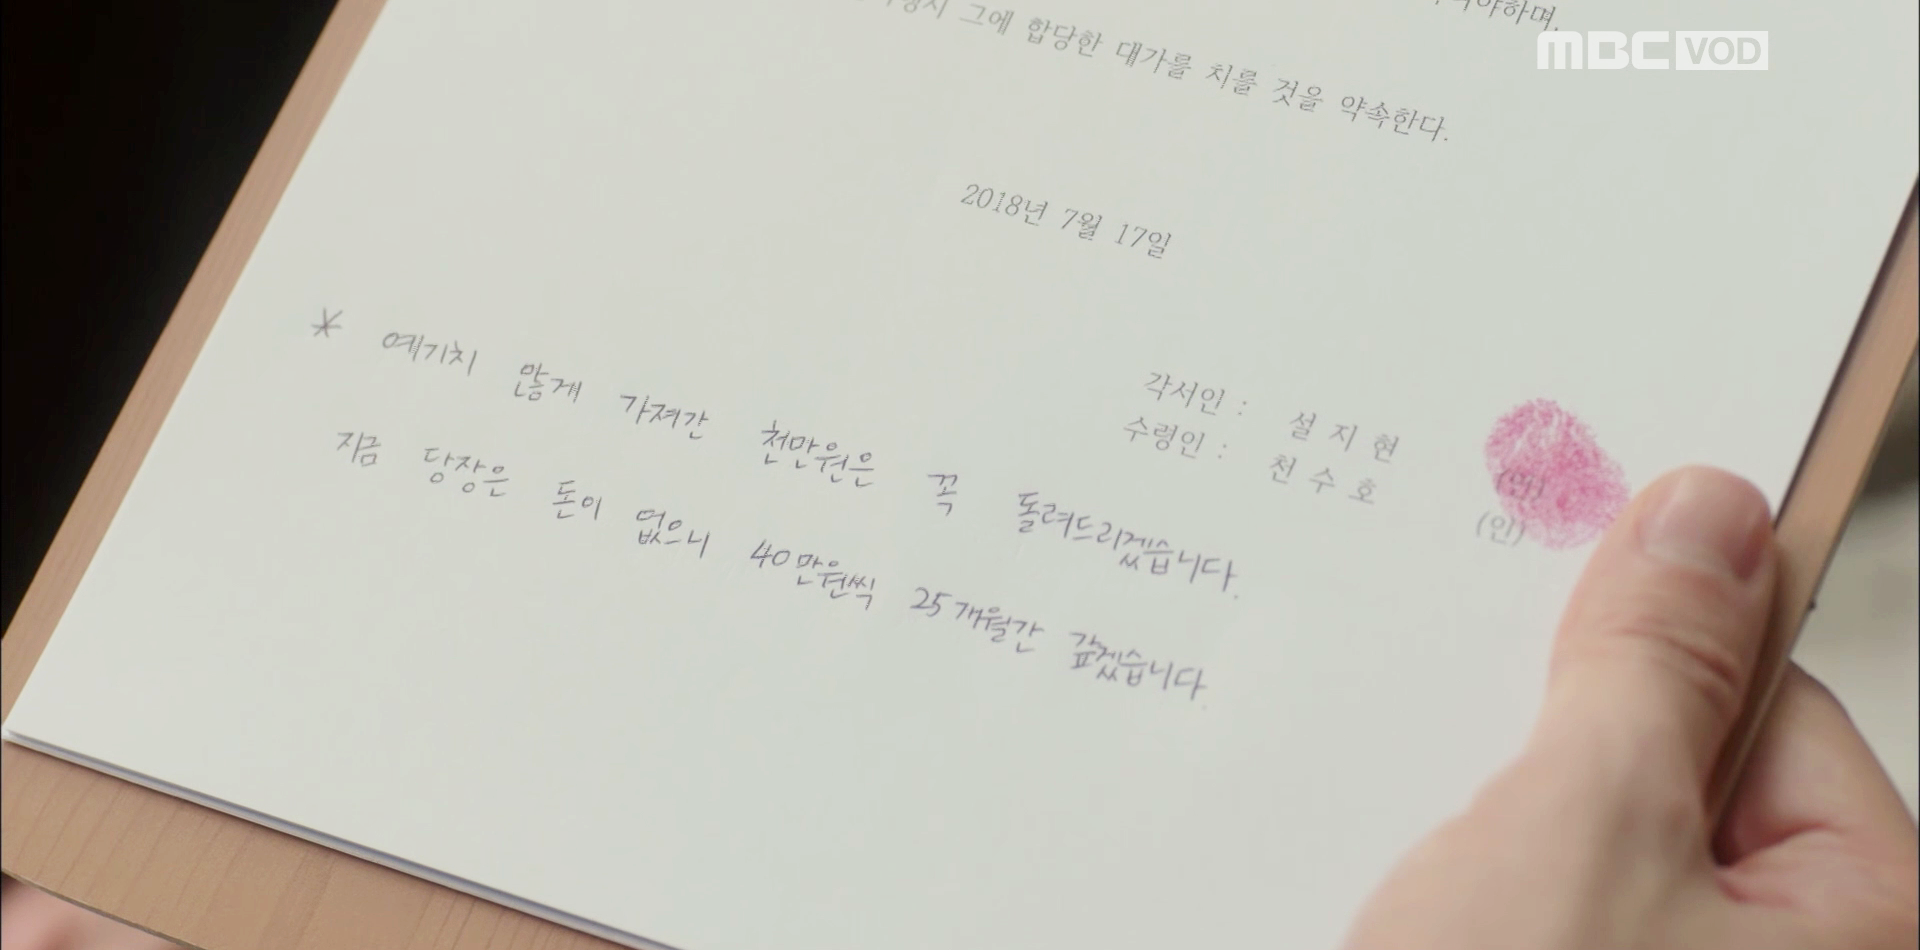 MBC VOD
그에 합당한 대가를 치룰 것을 약속한다.
2018년 7월 17일
각서인 : 설 지 현 (인)
수령인 : 천 수 호 (인)
* 예기치 않게 가져간 천만원은 꼭 돌려드리겠습니다.
지금 당장은 돈이 없으니 40만원씩 25개월간 갚겠습니다.